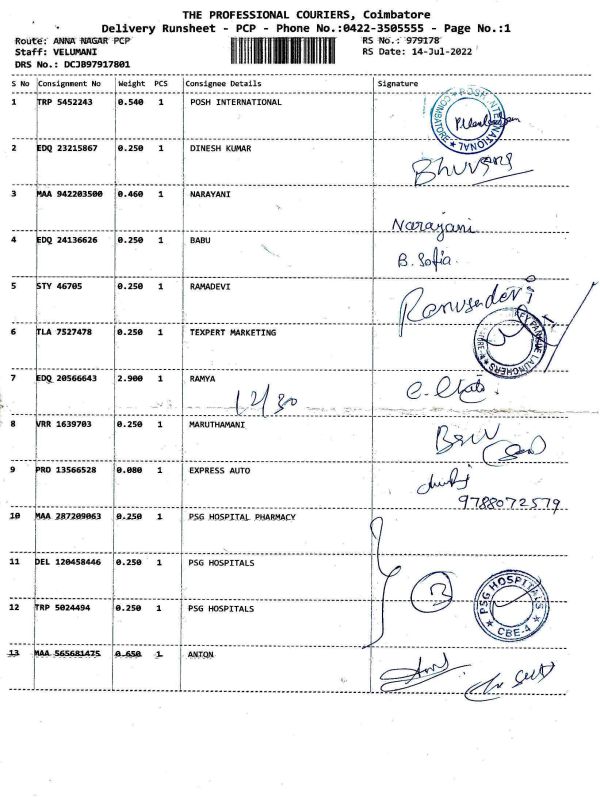 THE PROFESSIONAL COURIERS, Coimbatore
Delivery Runsheet - PCP - Phone No.:0422-3505555 - Page No.:1
Route: ANNA NAGAR PCP RS No.: 979178
Staff: VELUMANI RS Date: 14-Jul-2022
DRS No.: DCJB97917801
S No Consignment No Weight PCS Consignee Details Signature
1 TRP 5452243 0.540 1 POSH INTERNATIONAL
POSH INTERNATIONAL ★ COIMBATORE ★
2 EDQ 23215867 0.250 1 DINESH KUMAR
3 MAA 942203500 0.460 1 NARAYANI
Narayani
4 EDQ 24136626 0.250 1 BABU
B. Sofia
5 STY 46705 0.250 1 RAMADEVI
6 TLA 7527478 0.250 1 TEXPERT MARKETING
LAUNCHERS
7 EDQ 20566643 2.900 1 RAMYA
12/30
8 VRR 1639703 0.250 1 MARUTHAMANI
9 PRO 13566528 0.080 1 EXPRESS AUTO
9788072579
10 MAA 287209063 0.250 1 PSG HOSPITAL PHARMACY
11 DEL 120458446 0.250 1 PSG HOSPITALS
12 TRP 5024494 0.250 1 PSG HOSPITALS
3
PSG HOSPITALS ★ CBE-4 ★
13 MAA 565681475 0.650 1 ANTON